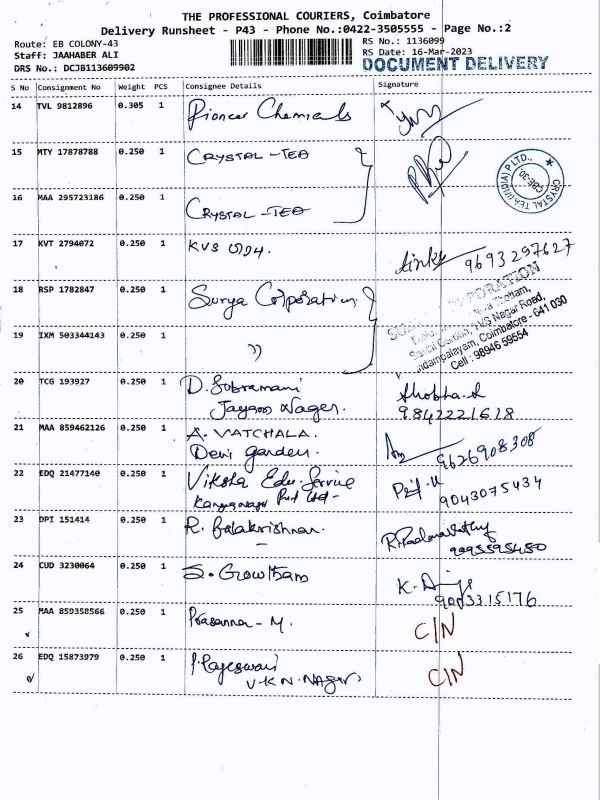 THE PROFESSIONAL COURIERS, Coimbatore
Delivery Runsheet - P43 - Phone No.:0422-3505555 - Page No.:2
Route: EB COLONY-43
RS No.: 1136099
Staff: JAAHABER ALI
RS Date: 16-Mar-2023
DRS No.: DCJB113609902
DOCUMENT DELIVERY
S No Consignment No Weight PCS Consignee Details Signature
14 TVL 9812896 0.305 1 Pioneer Chemicals
15 MTY 17878788 0.250 1 CRYSTAL-TEA
CRYSTAL TEA (INDIA) P LTD.,
CBE-36
16 MAA 295723186 0.250 1 CRYSTAL-TEA
17 KVT 2794072 0.250 1 KVS 9693297627
18 RSP 1782847 0.250 1 Surya Corporation
Nagar Road,
Coimbatore - 641 030
Cell : 98946 59554
19 IXM 503344143 0.250 1 "
20 TCG 193927 0.250 1 D. Subramani Shobha
Nager. 9842221618
21 MAA 859462126 0.250 1 A. VATCHALA.
Devi garden. 9626908308
22 EDQ 21477140 0.250 1 Viksha Edu. Service
Pvt Ltd- 9043075434
23 DPI 151414 0.250 1 R. Balakrishnan.
24 CUD 3230064 0.250 1 S. Growtham K.
9003315176
25 MAA 859358566 0.250 1 Prasanna - M. C/N
26 EDQ 15873979 0.250 1 P. Rajeswari C/N
V.K.N. NAGAR